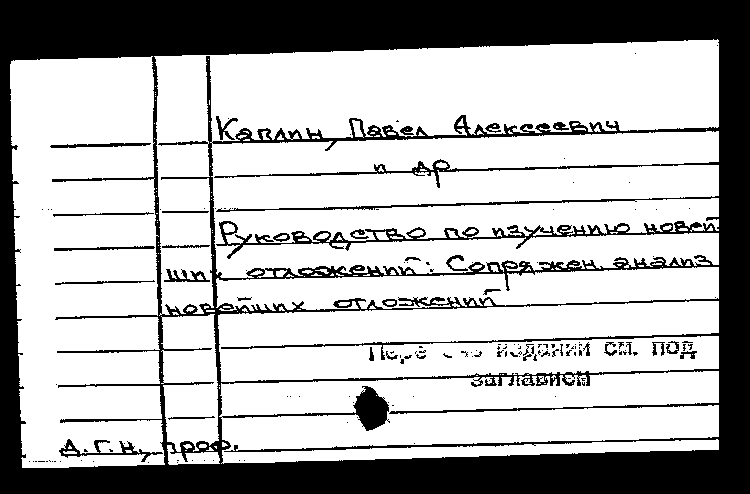 Каплин, Павел Алексеевич
и др
Руководство по изучению новей-
ших отложений: Сопряжен. анализ
новейших отложений
изданий см. под
заглавием
д.г.н., проф.